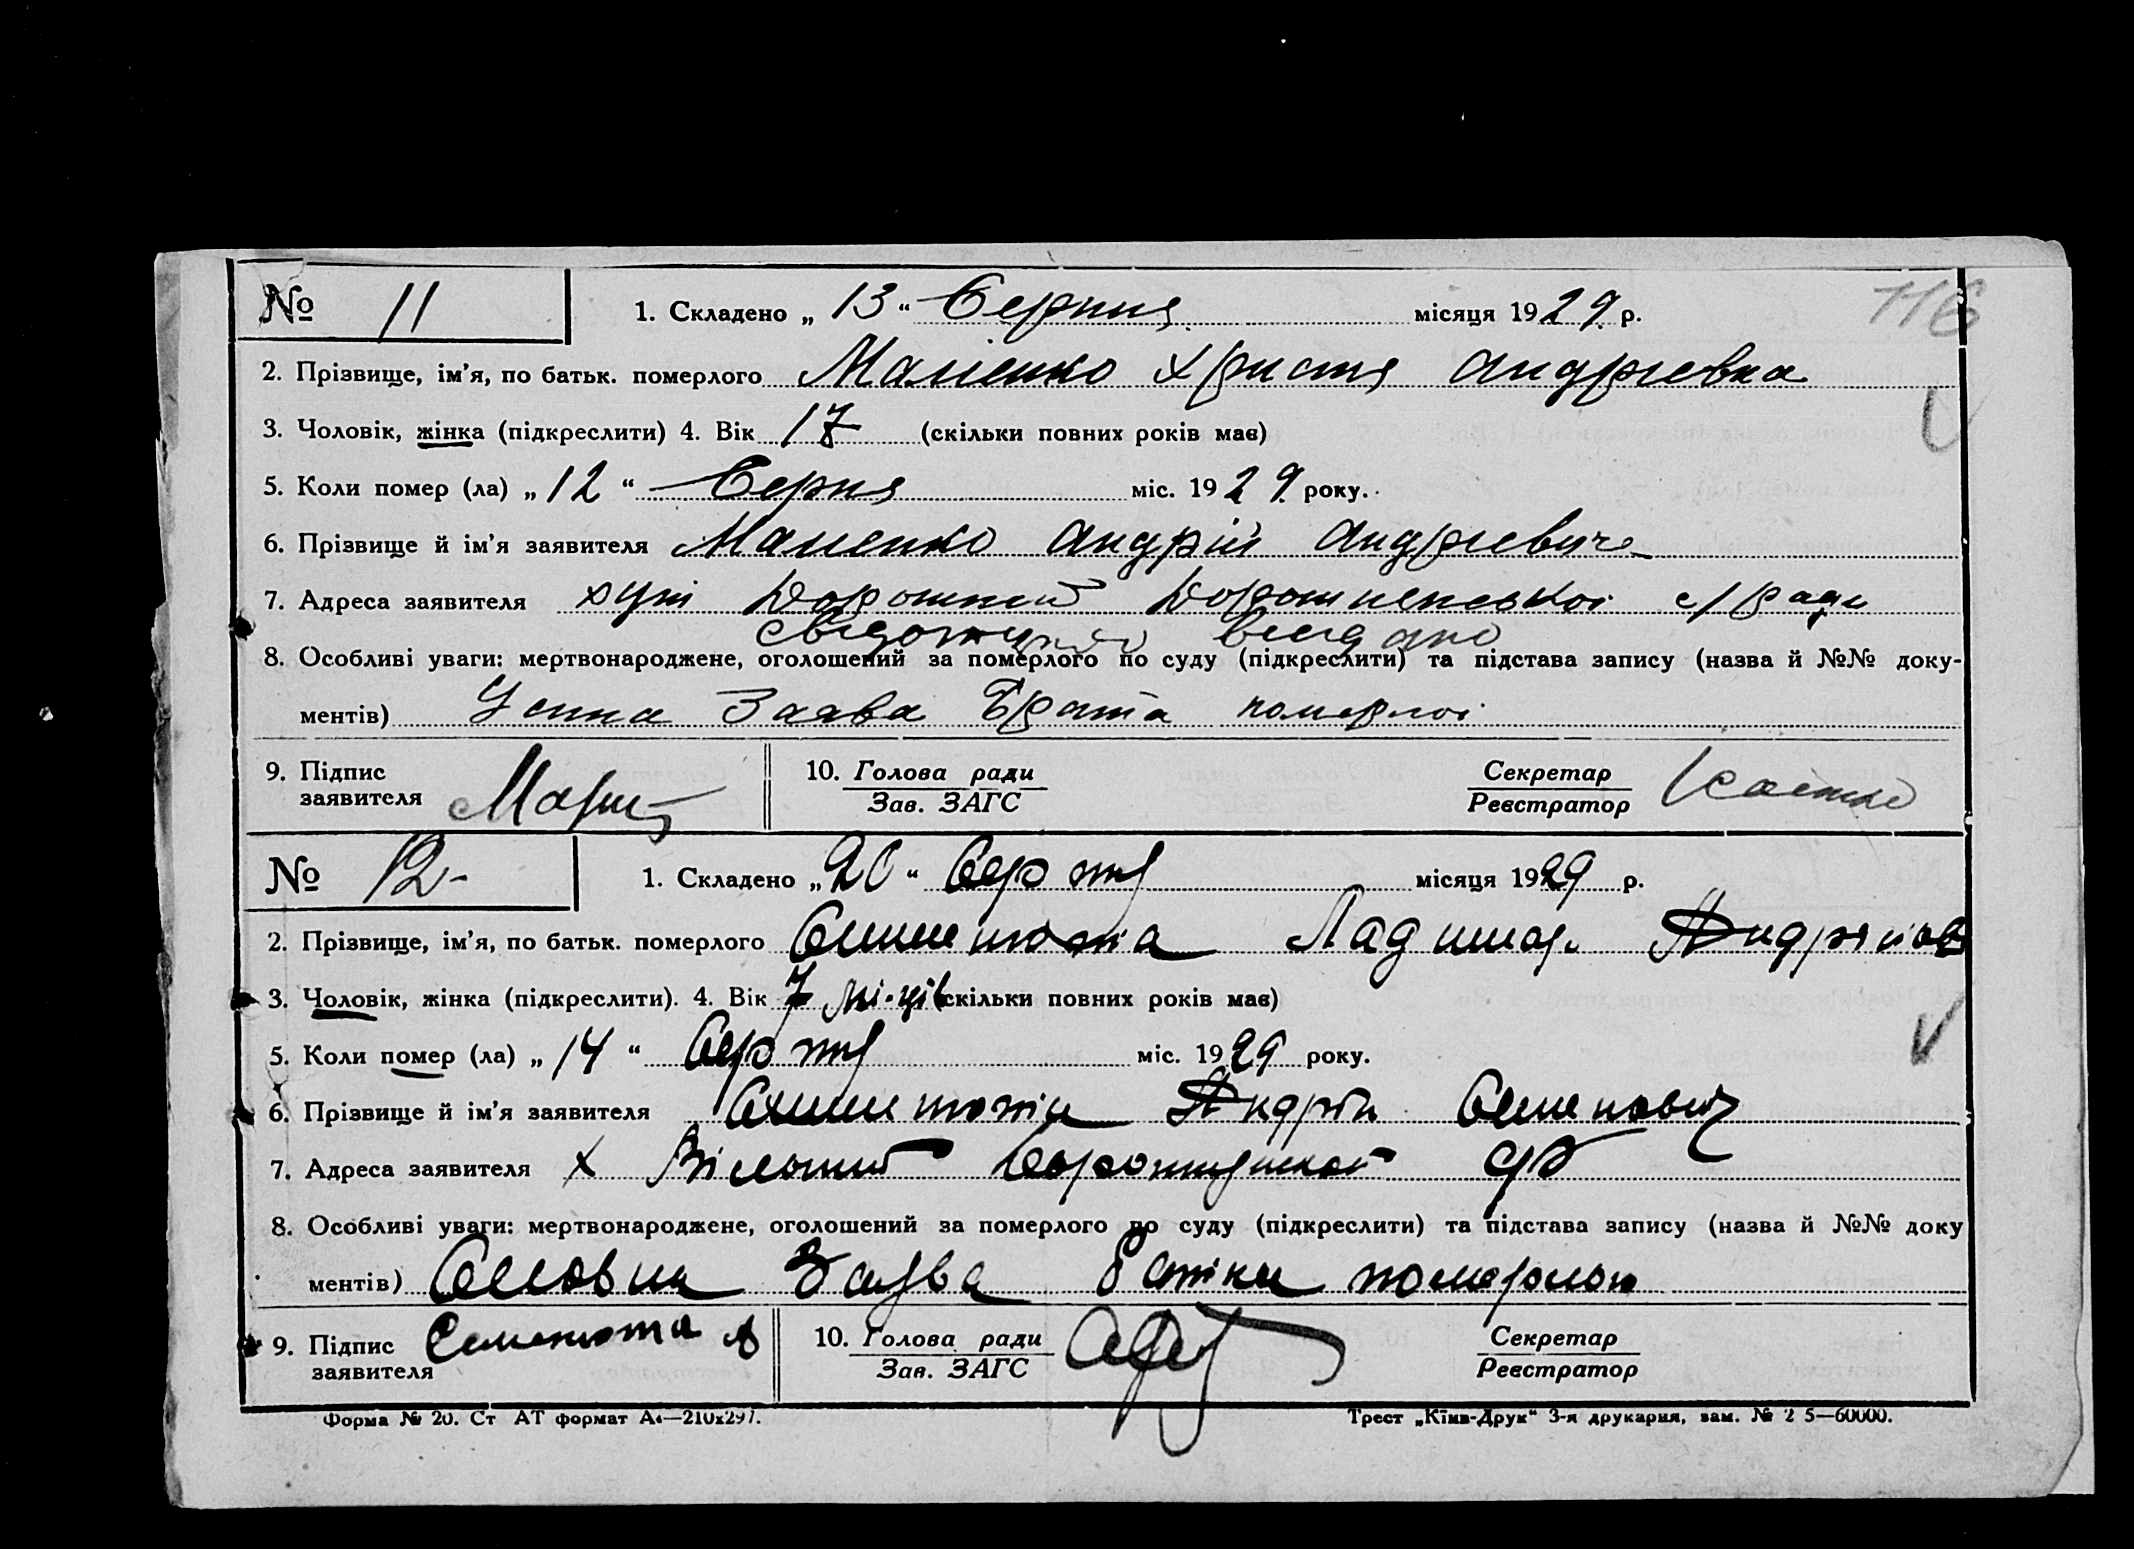 116
№ 11 1. Складено „ 13 “ Серпня місяця 1929 р.
2. Прізвище, ім’я, по батьк. померлого Манепко Христя Андриевна
3. Чоловік, жінка (підкреслити) 4. Вік 17 (скільки повних років має)
5. Коли помер (ла) „ 12 “ Серпня міс. 1929 року.
6. Прізвище й ім’я заявителя Манепко Андрій Андриевич
7. Адреса заявителя с/ ради
видано
8. Особливі уваги: мертвонароджене, оголошений за померлого по суду (підкреслити) та підстава запису (назва й №№ доку-
ментів) Усна Заява Брата померлої
9. Підпис
заявителя
10. Голова ради
Зав. ЗАГС
Секретар
Реєстратор
№ 12- 1. Складено „ 20 “ Серпня місяця 1929 р.
2. Прізвище, ім’я, по батьк. померлого Семенюта Андріїов
3. Чоловік, жінка (підкреслити). 4. Вік 7 мі-ців (скільки повних років має)
5. Коли помер (ла) „ 14 “ Серпня міс. 1929 року.
6. Прізвище й ім’я заявителя Семенюта Андрій Семенович
7. Адреса заявителя х Вільший
8. Особливі уваги: мертвонароджене, оголошений за померлого по суду (підкреслити) та підстава запису (назва й №№ доку
ментів) Словна Заява батька померлого
9. Підпис Семенюта А
заявителя
10. Голова ради
Зав. ЗАГС
Секретар
Реєстратор
Форма № 20. Ст АТ формат А4—210х297.
Трест „Київ-Друк“ 3-я друкарня, зам. № 2 5—60000.